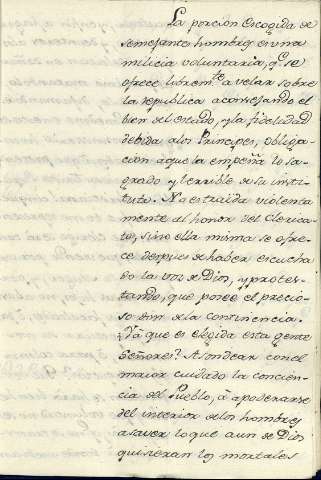 La porcion Escogida de
semejantes hombres es una
milicia voluntaria, q.e se
ofrece librem.te a velar sobre
la republica aconsejando el
bien del estado, y la fidelidad
debida a los Principes, obliga-
cion à que la empeña lo sa-
grado y terrible de su insti-
tuto. No estraida violenta
mente al honor del Clerica-
to, sino ella misma se ofre-
ce despues de haber escucha
do la voz de Dios, y protes-
tando, que posee el precio-
so don de la continencia.
¿Yâ que es elegida esta gente
Señores? A sondear con el
maior cuidado la concien-
cia del Pueblo, â apoderarse
del interior de los hombres
a saver lo que aun de Dios
quisieran los mortales